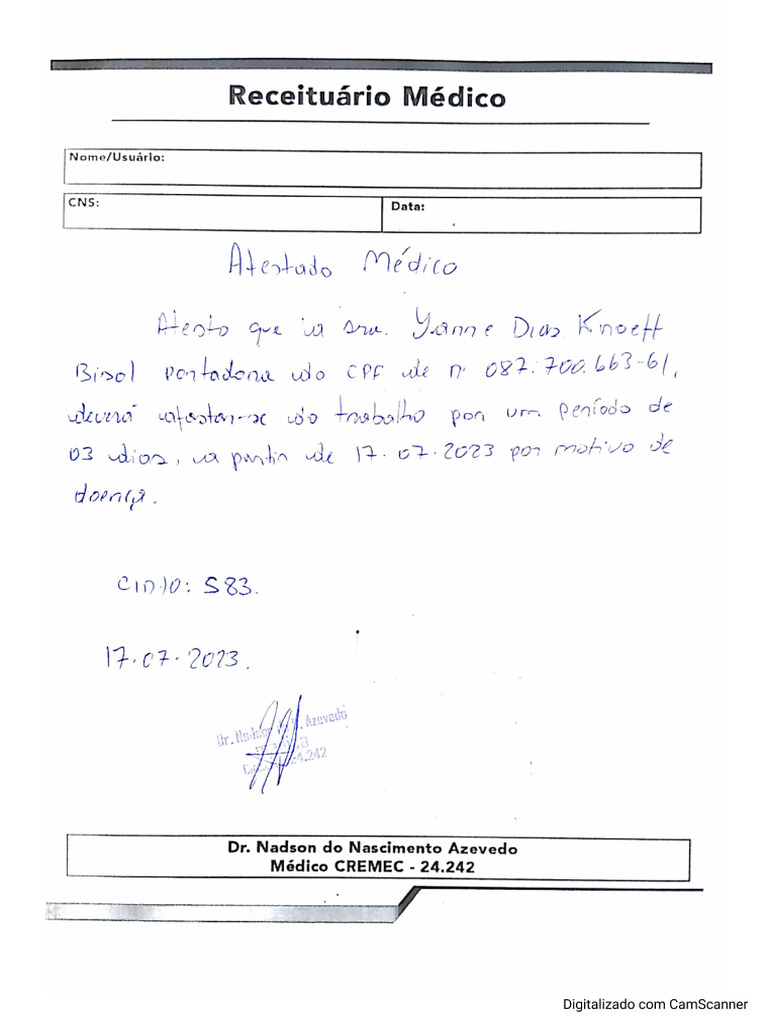 Receituário Médico
Nome/Usuário:
CNS:
Data:
Atestado Médico
Atesto que a sra. Yanne Dias Knoeff
Bisol portadora do CPF de nº 087.700.663-61,
deverá afastar-se do trabalho por um período de
03 dias, a partir de 17.07.2023 por motivo de
doença.
CID10: S83.
17.07.2023.
Dr. Nadson N. Azevedo
24.242
Dr. Nadson do Nascimento Azevedo
Médico CREMEC - 24.242
Digitalizado com CamScanner